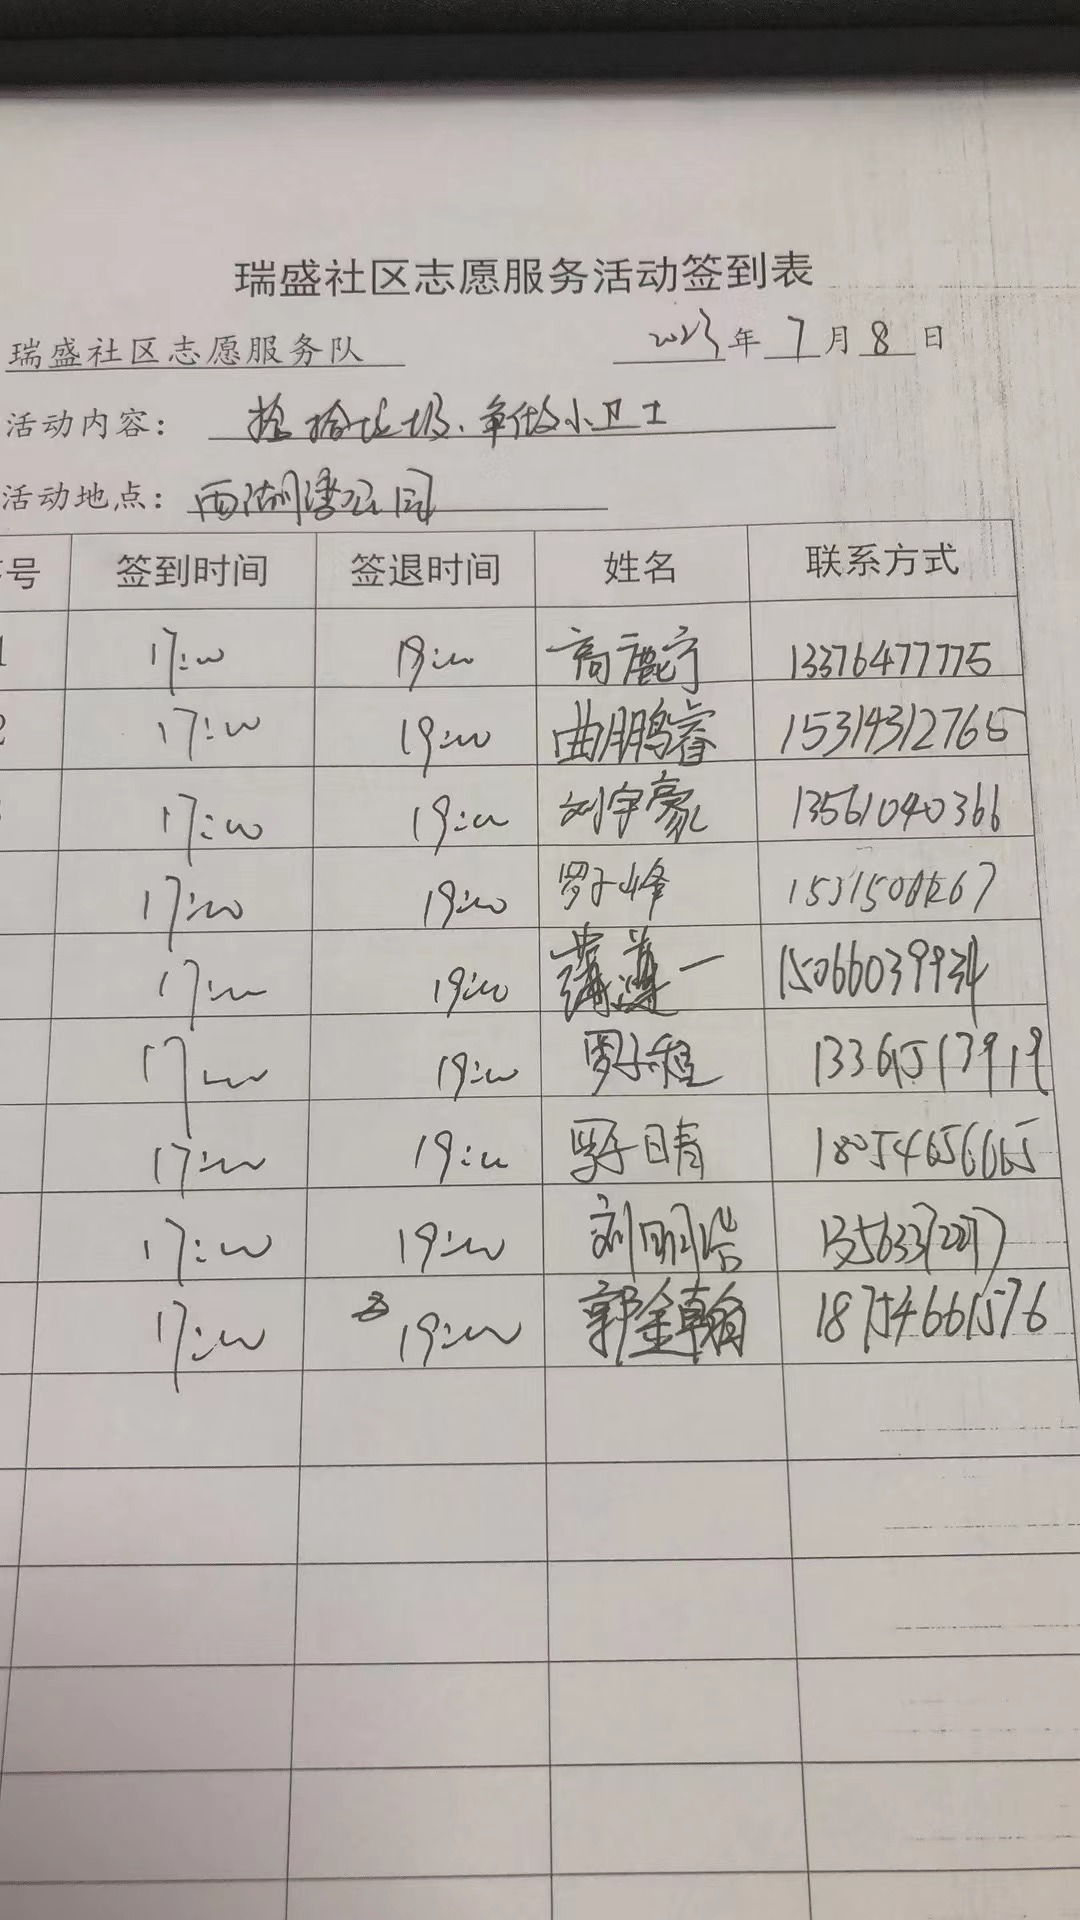 瑞盛社区志愿服务活动签到表
瑞盛社区志愿服务队 2023年7月8日
活动内容: 捡拾垃圾、争做小卫士
活动地点: 西湖湾公园
号 签到时间 签退时间 姓名 联系方式
1 17:00 19:00 高鹿宁 13376477775
2 17:00 19:00 曲鹏睿 15314312765
17:00 19:00 刘宇豪 13561040366
17:00 19:00 罗子峰
17:00 19:00 15066039934
17:00 19:00 罗子程 13361513919
17:00 19:00 18054656665
17:00 19:00 刘明浩 13563372277
17:00 19:00 郭金翰 18754661576